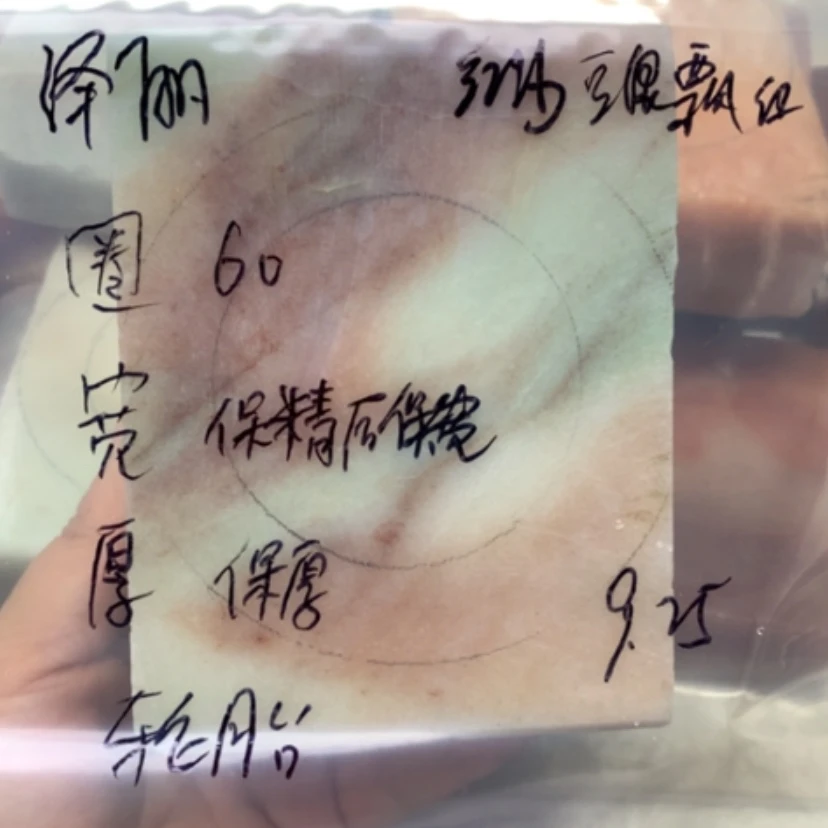 泽丽
豆绿飘红
圈 60
宽 保精后保宽
厚 保厚
9.25
轮胎